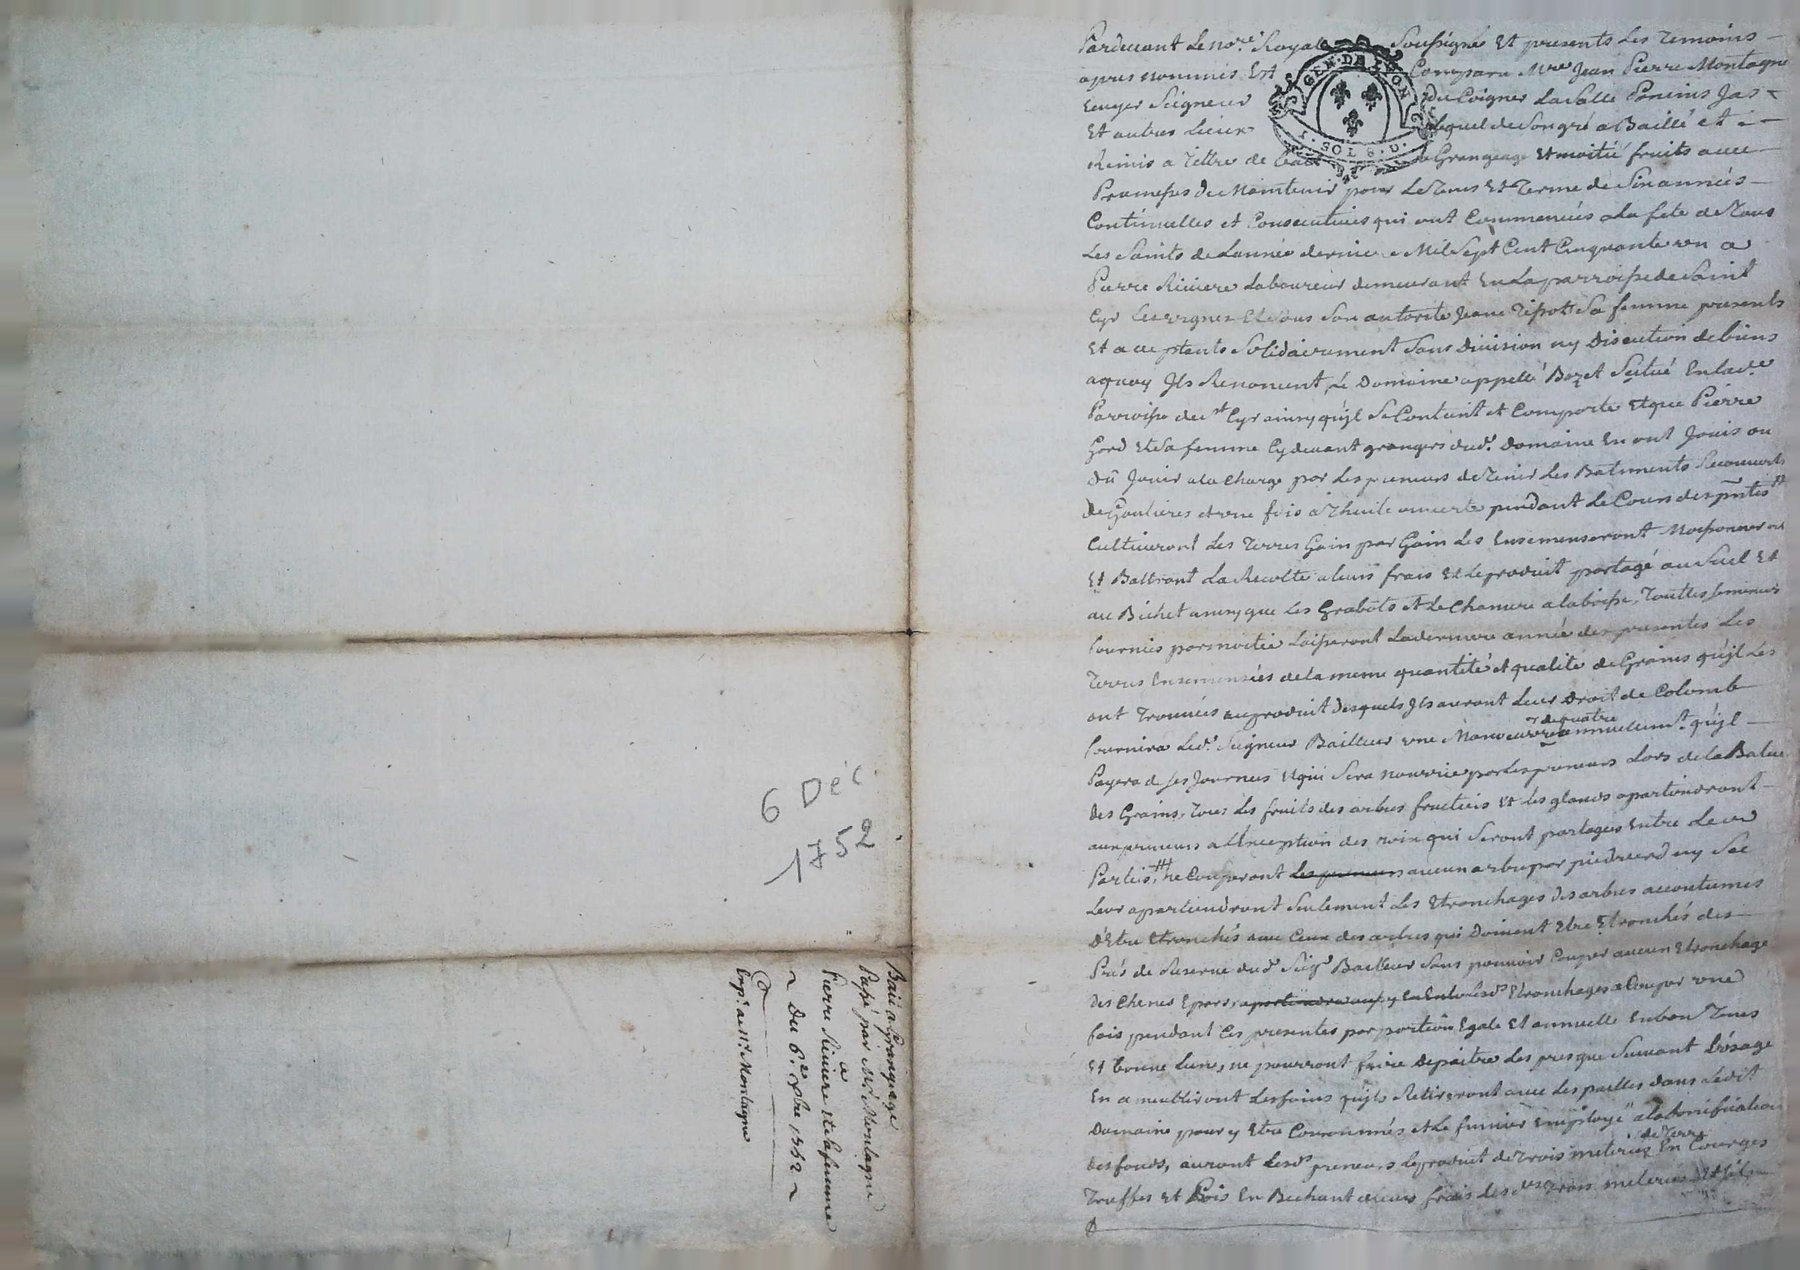 6 Déc
1752
Bail a Grangeage
Passé par Mr. Montagne
a
Pierre Riviere et sa femme
~ Du 6.e Xbre 1752 ~
Exp.on a M.r Montagne
GEN. DE LYON
1. SOL 8. D.
Pardevant Le no.re Royal Soussigné Et presents Les Temoins
apres nommés Est Comparu M.re Jean Pierre Montagne
Ecuyer Seigneur Du Poigner La Salle Jas
Et autres Lieux Lequel de Son gré a Baillé et
Remis a Tittre de Bail a Grangeage Et moitié fruits avec
Promesses De Maintenir pour Le Tems Et Terme de Six années
Continuelles et Consecutives qui ont Commencées a La fete de Tous
Les Saints de L'année derniere Mil Sept Cent Cinquante un a
Pierre Riviere Laboureur demeurant En La parroisse de Saint
Cyr Les vignes Et Sous Son autorité Jeane Sa femme presents
Et acceptants Solidairement Sans Division ny Discution de biens
aquoy Ils Renoncent, Le Domaine appellé Bozet Scitué En lad.e
Parroisse de St Cyr ainsy qu'jl Se Contient et Comporte Et que Pierre
Gord Et Sa femme Cydevant grangers dud.t Domaine En ont Jouis ou
Dû Jouir a la Charge par Les preneurs de Tenir Les Batiments Recouverts
De Goutieres et une fois a Thuile ouverte pendant Le Cours des pntes
Cultiveront Les Terres Gain par Gain Les Ensemenseront Moissoneront
Et Battront La Recolte a leurs frais Et Le produit partagé au Suel Et
au Bichet ainsy que Les Grabots et Le Chanvre a la boisse, Touttes Semences
fournies par moitié Laisseront La derniere année des presentes Les
Terres Ensemensées de la meme quantité et qualité de Grains qu'jl Les
ont Trouvées au produit Desquels Ils auront Leur Droit de Colomb
fournira Led.t Seigneur Bailleur une Manoeuvre annuellem.t qu'jl
de quatre
Payera de Ses Journées Et qui Sera nourrie par Les preneurs Lors de la Batue
Des Grains, Tous Les fruits des arbres fructiers Et Les glands apartiendront
aux preneurs a L'Exception des noix qui Seront partagées Entre Les
Parties, ne Couperont Les preneurs aucun arbre par pied verd ny Sec
Leur apartiendront Seulement Les Etronchages Des arbres accoutumés
D'Etre Etronchés avec Ceux des arbres qui Doivent Etre Etronchés des
Prés de Reserve dud.t Seig.r Bailleur Sans pouvoir Couper aucun Etronchage
Des Chenes Epars Etronchages a Couper une
fois pendant Ces presentes par portion Egale Et annuelle En bon Tems
Et bonne Lune, ne pourront faire Depaitre Les prés que Suivant L'usage
En ameubliront Les foins qu'jls Retireront avec Les pailles dans Ledit
Domaine pour y Etre Consommés et Le fumier Employé a la bonification
des fonds, auront Lesd.ts preneurs Le produit de Trois meterées En Courges
de Terre
Truffes Et Pois En Bechant a leurs frais Les d.es Trois meterées